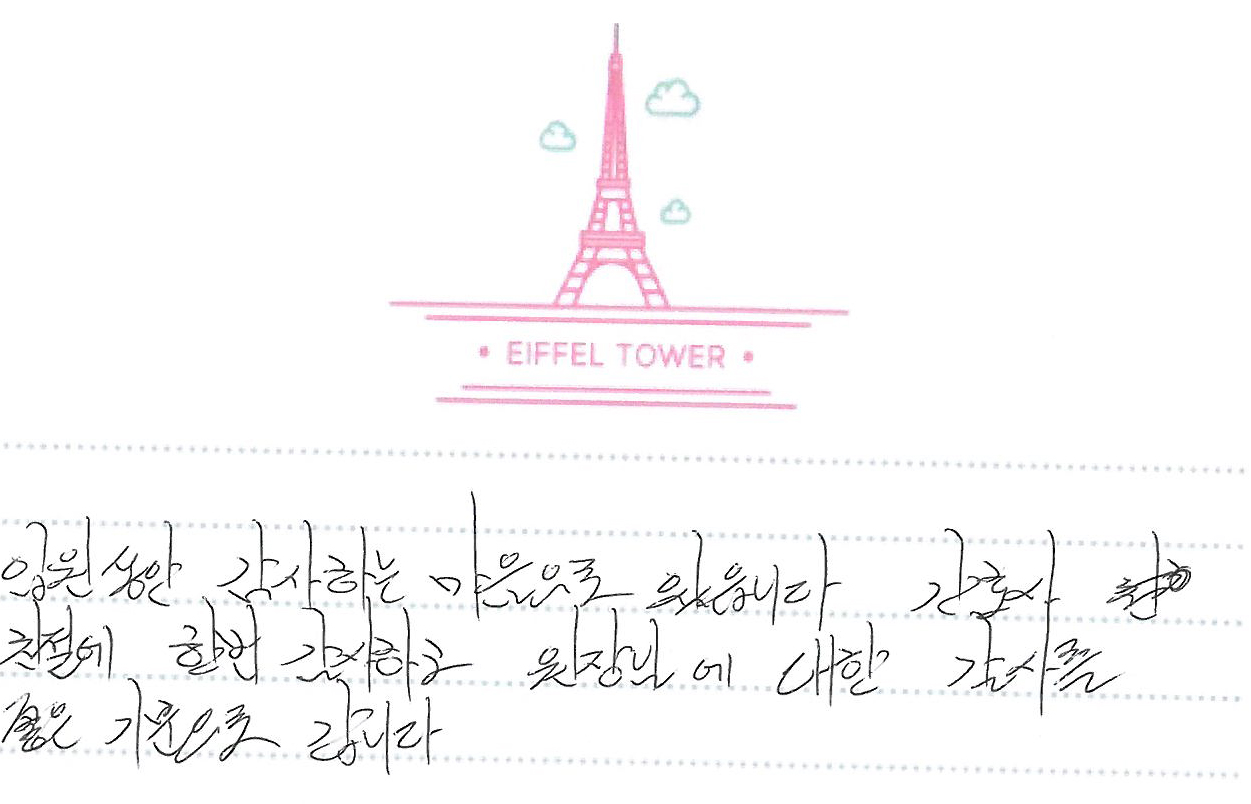 EIFFEL TOWER
입원동안 감사하는 마음으로 있읍니다 간호사
친절에 한번 감사하고 원장님에 대한 감사를
좋은 기분으로 갑니다